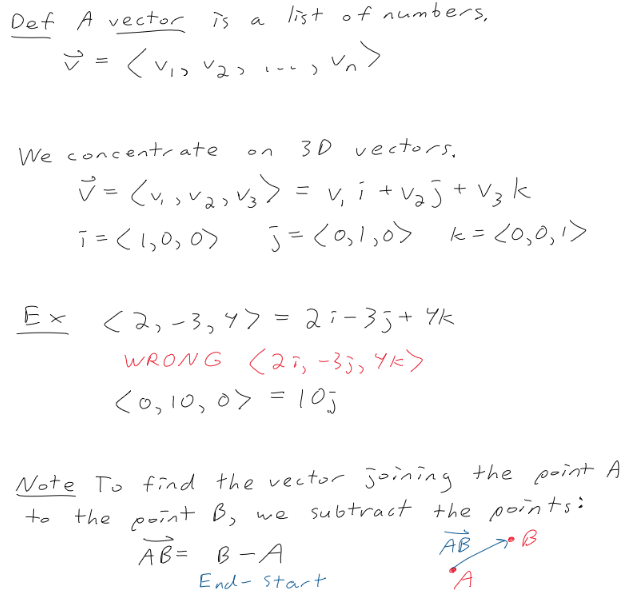 Def A vector is a list of numbers.
v⃗ = ⟨v₁, v₂, ..., vₙ⟩
We concentrate on 3D vectors.
v⃗ = ⟨v₁, v₂, v₃⟩ = v₁ i + v₂ j + v₃ k
i = ⟨1,0,0⟩ j = ⟨0,1,0⟩ k = ⟨0,0,1⟩
Ex ⟨2, -3, 4⟩ = 2i - 3j + 4k
WRONG ⟨2i, -3j, 4k⟩
⟨0, 10, 0⟩ = 10j
Note To find the vector joining the point A
to the point B, we subtract the points:
A͞B⃗ = B - A
End - Start
AB⃗
B
A